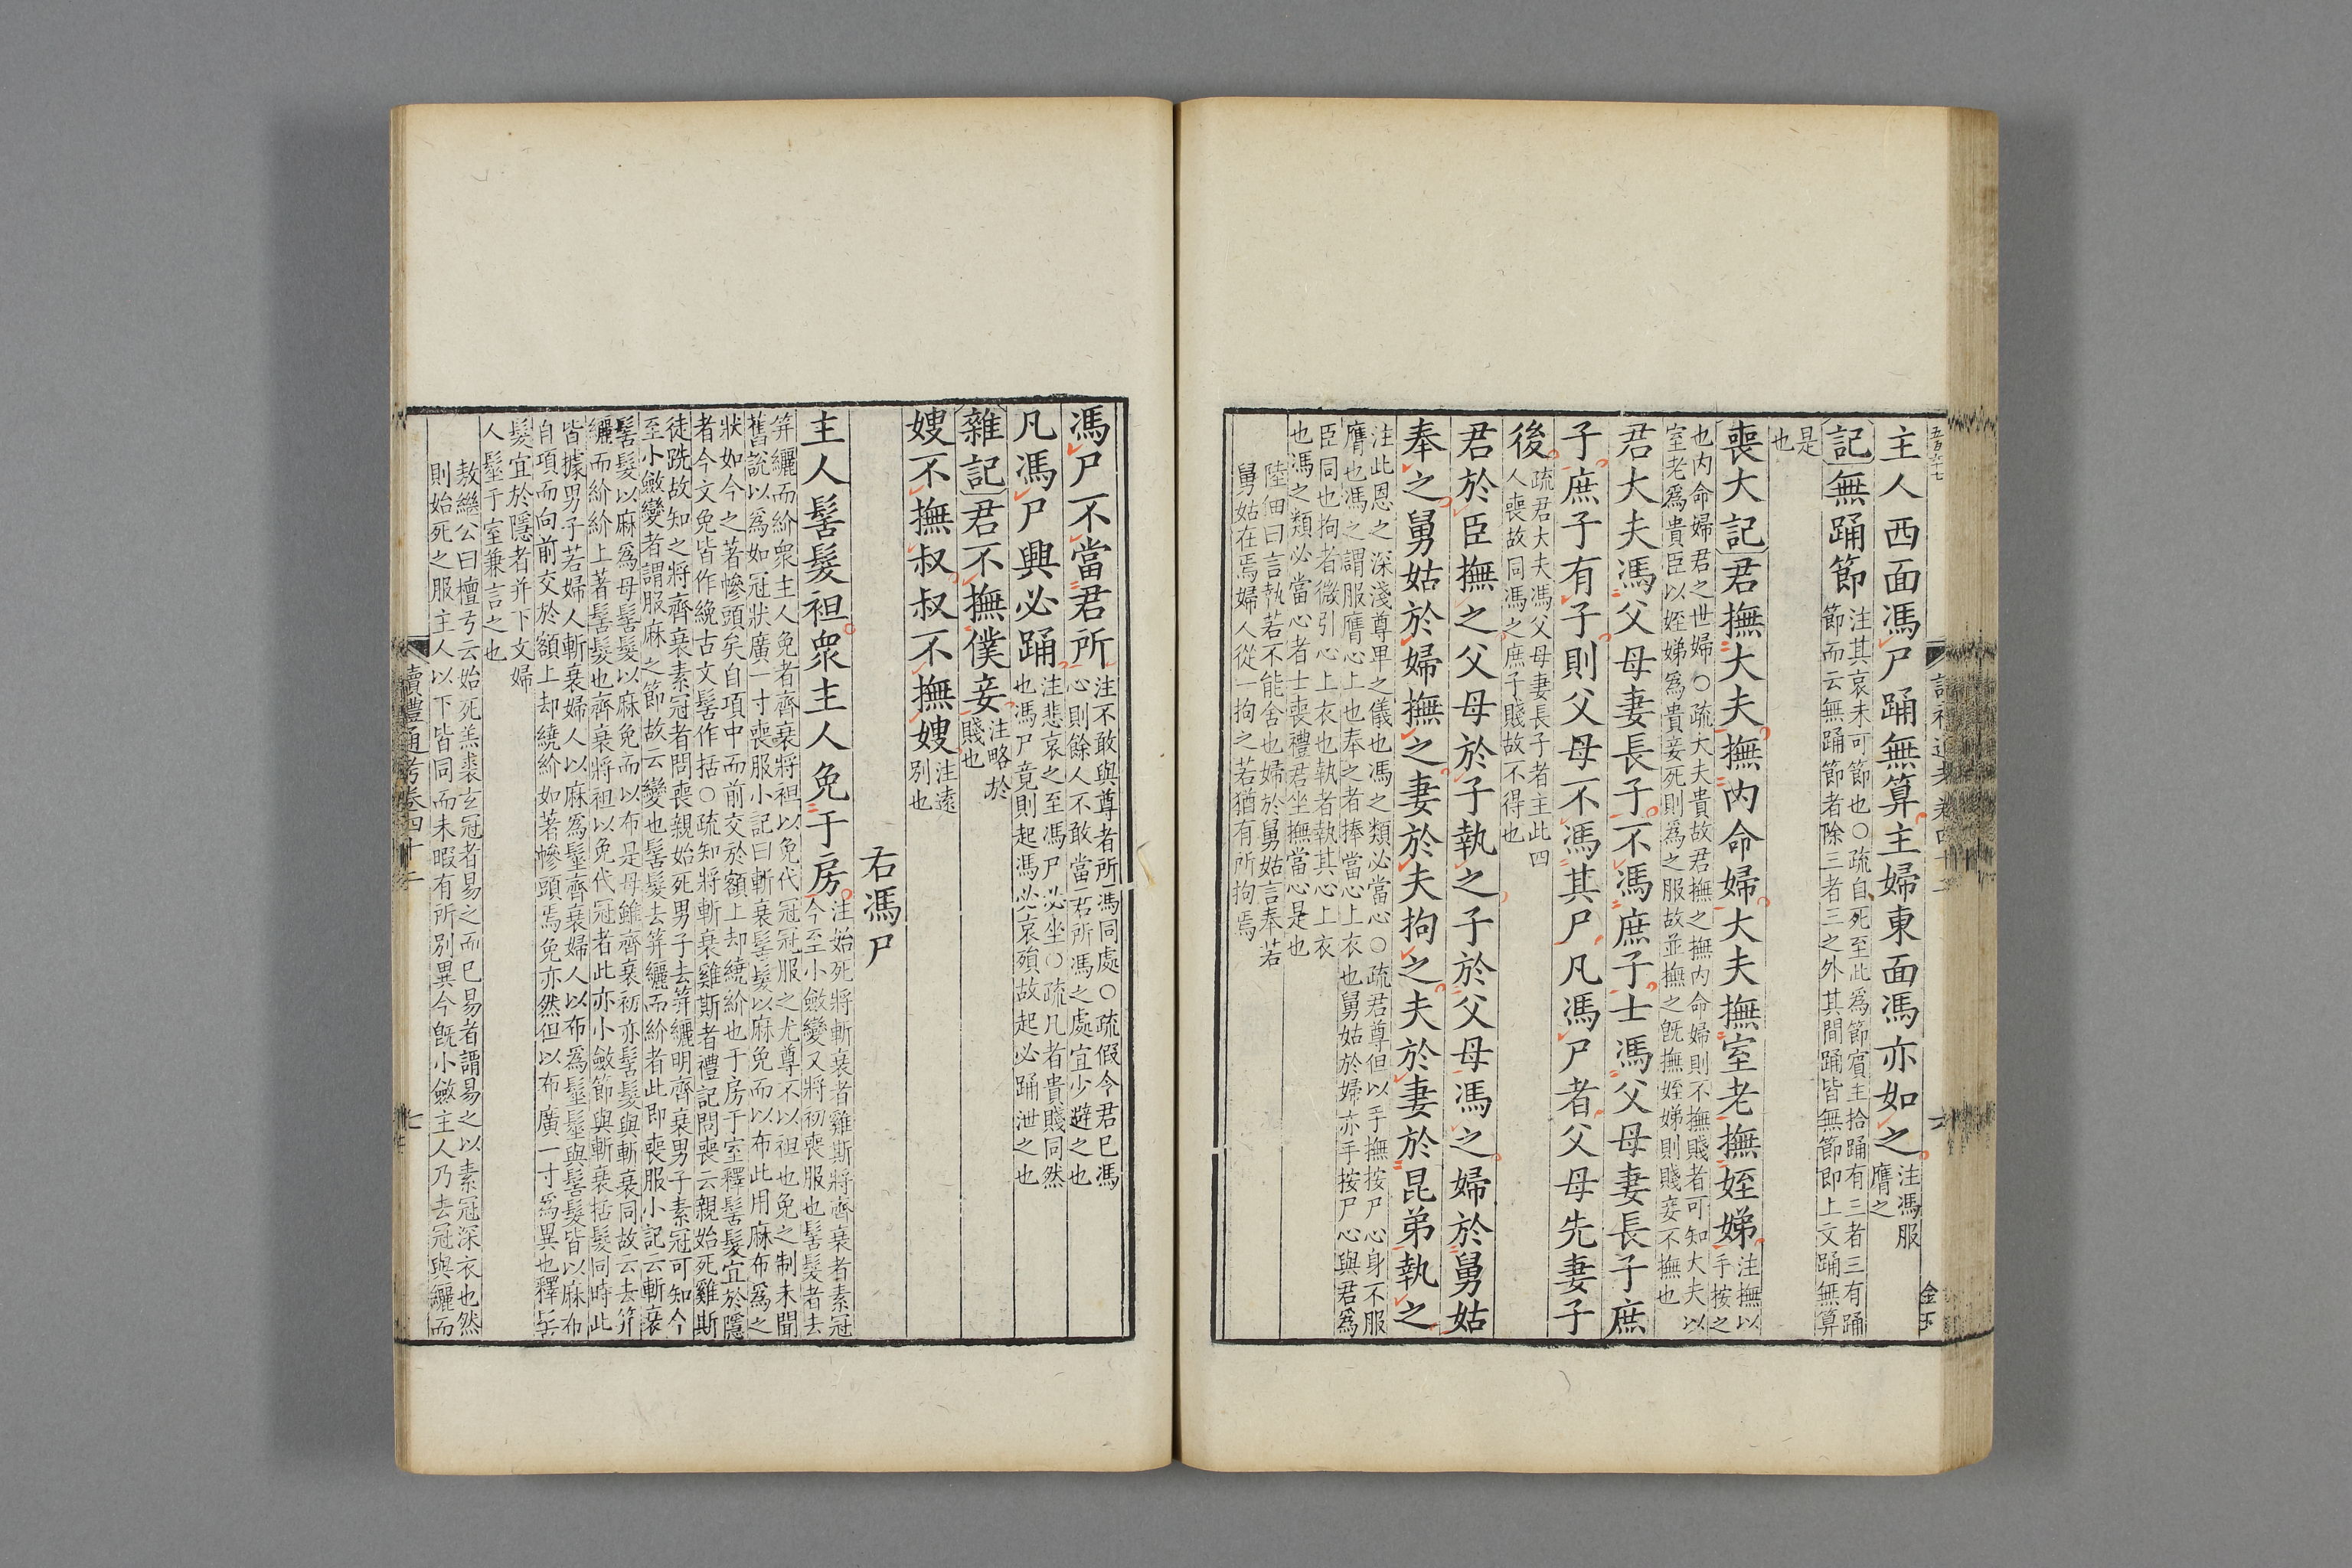 主人西面馮尸踊無算主婦東面馮亦如之注馮服
膺之
記無踊節注其哀未可節也○疏自死至此為節賓主拾踊有三者三有踊
節而云無踊節者除三者三之外其間踊皆無節即上文踊無算
是
也
喪大記君撫大夫撫內命婦大夫撫室老撫姪娣注撫以
手按之
也內命婦君之世婦○疏大夫貴故君撫之撫內命婦則不撫賤者可知大夫以
室老爲貴臣以姪娣爲貴妾死則爲之服故並撫之旣撫姪娣則賤妾不撫也
君大夫馮父母妻長子不馮庶子士馮父母妻長子庶
子庶子有子則父母不馮其尸凡馮尸者父母先妻子
後疏君大夫馮父母妻長子者主此四
人喪故同馮之庶子賤故不得也
君於臣撫之父母於子執之子於父母馮之婦於舅姑
奉之舅姑於婦撫之妻於夫拘之夫於妻於昆弟執之
注此恩之深淺尊卑之儀也馮之類必當心○疏君尊但以手撫按尸心身不服
膺也馮之謂服膺心上也奉之者捧當心上衣也舅姑於婦亦手按尸心與君爲
臣同也拘者微引心上衣也執者執其心上衣
也馮之類必當心者士喪禮君坐撫當心是也
陸佃曰言執若不能舍也婦於舅姑言奉若
舅姑在焉婦人從一拘之若猶有所拘焉
馮尸不當君所注不敢與尊者所馮同處○疏假令君已馮
心則餘人不敢當君所馮之處宜少避之也
凡馮尸興必踊注悲哀之至馮尸必坐○疏凡者貴賤同然
也馮尸竟則起馮必哀殞故起必踊泄之也
雜記君不撫僕妾注略於
賤也
嫂不撫叔叔不撫嫂注遠
別也
右馮尸
主人髻髮袒眾主人免于房注始死將斬衰者雞斯將齊衰者素冠
今至小斂變又將初喪服也髻髮者去
笄纚而紒眾主人免者齊衰將袒以免代冠冠服之尤尊不以袒也免之制未聞
舊說以爲如冠狀廣一寸喪服小記曰斬衰髻髮以麻免而以布此用麻布爲之
狀如今之著幓頭矣自項中而前交於額上却繞紒也于房于室釋髻髮宜於隱
者今文免皆作絻古文髻作括○疏知將斬衰雞斯者禮記問喪云親始死雞斯
徒跣故知之將齊衰素冠者問喪親始死男子去笄纚明齊衰男子素冠可知今
至小斂變者謂服麻之節故云變也髻髮去笄纚而紒者此即喪服小記云斬衰
髻髮以麻爲母髻髮以麻免而以布是母雖齊衰初亦髻髮與斬衰同故云去笄
纚而紒紒上著髻髮也齊衰將袒以免代冠者此亦小斂節與斬衰括髮同時此
皆據男子若婦人斬衰婦人以麻爲髽齊衰婦人以布爲髽髽與髻髮皆以麻布
自項而向前交於額上却繞紒如著幓頭焉免亦然但以布廣一寸爲異也釋髻
髮宜於隱者并下文婦
人髽于室兼言之也
敖繼公曰檀弓云始死羔裘玄冠者易之而已易者謂易之以素冠深衣也然
則始死之服主人以下皆同而未暇有所別異今旣小斂主人乃去冠與纚而
讀禮通考卷四十二
七